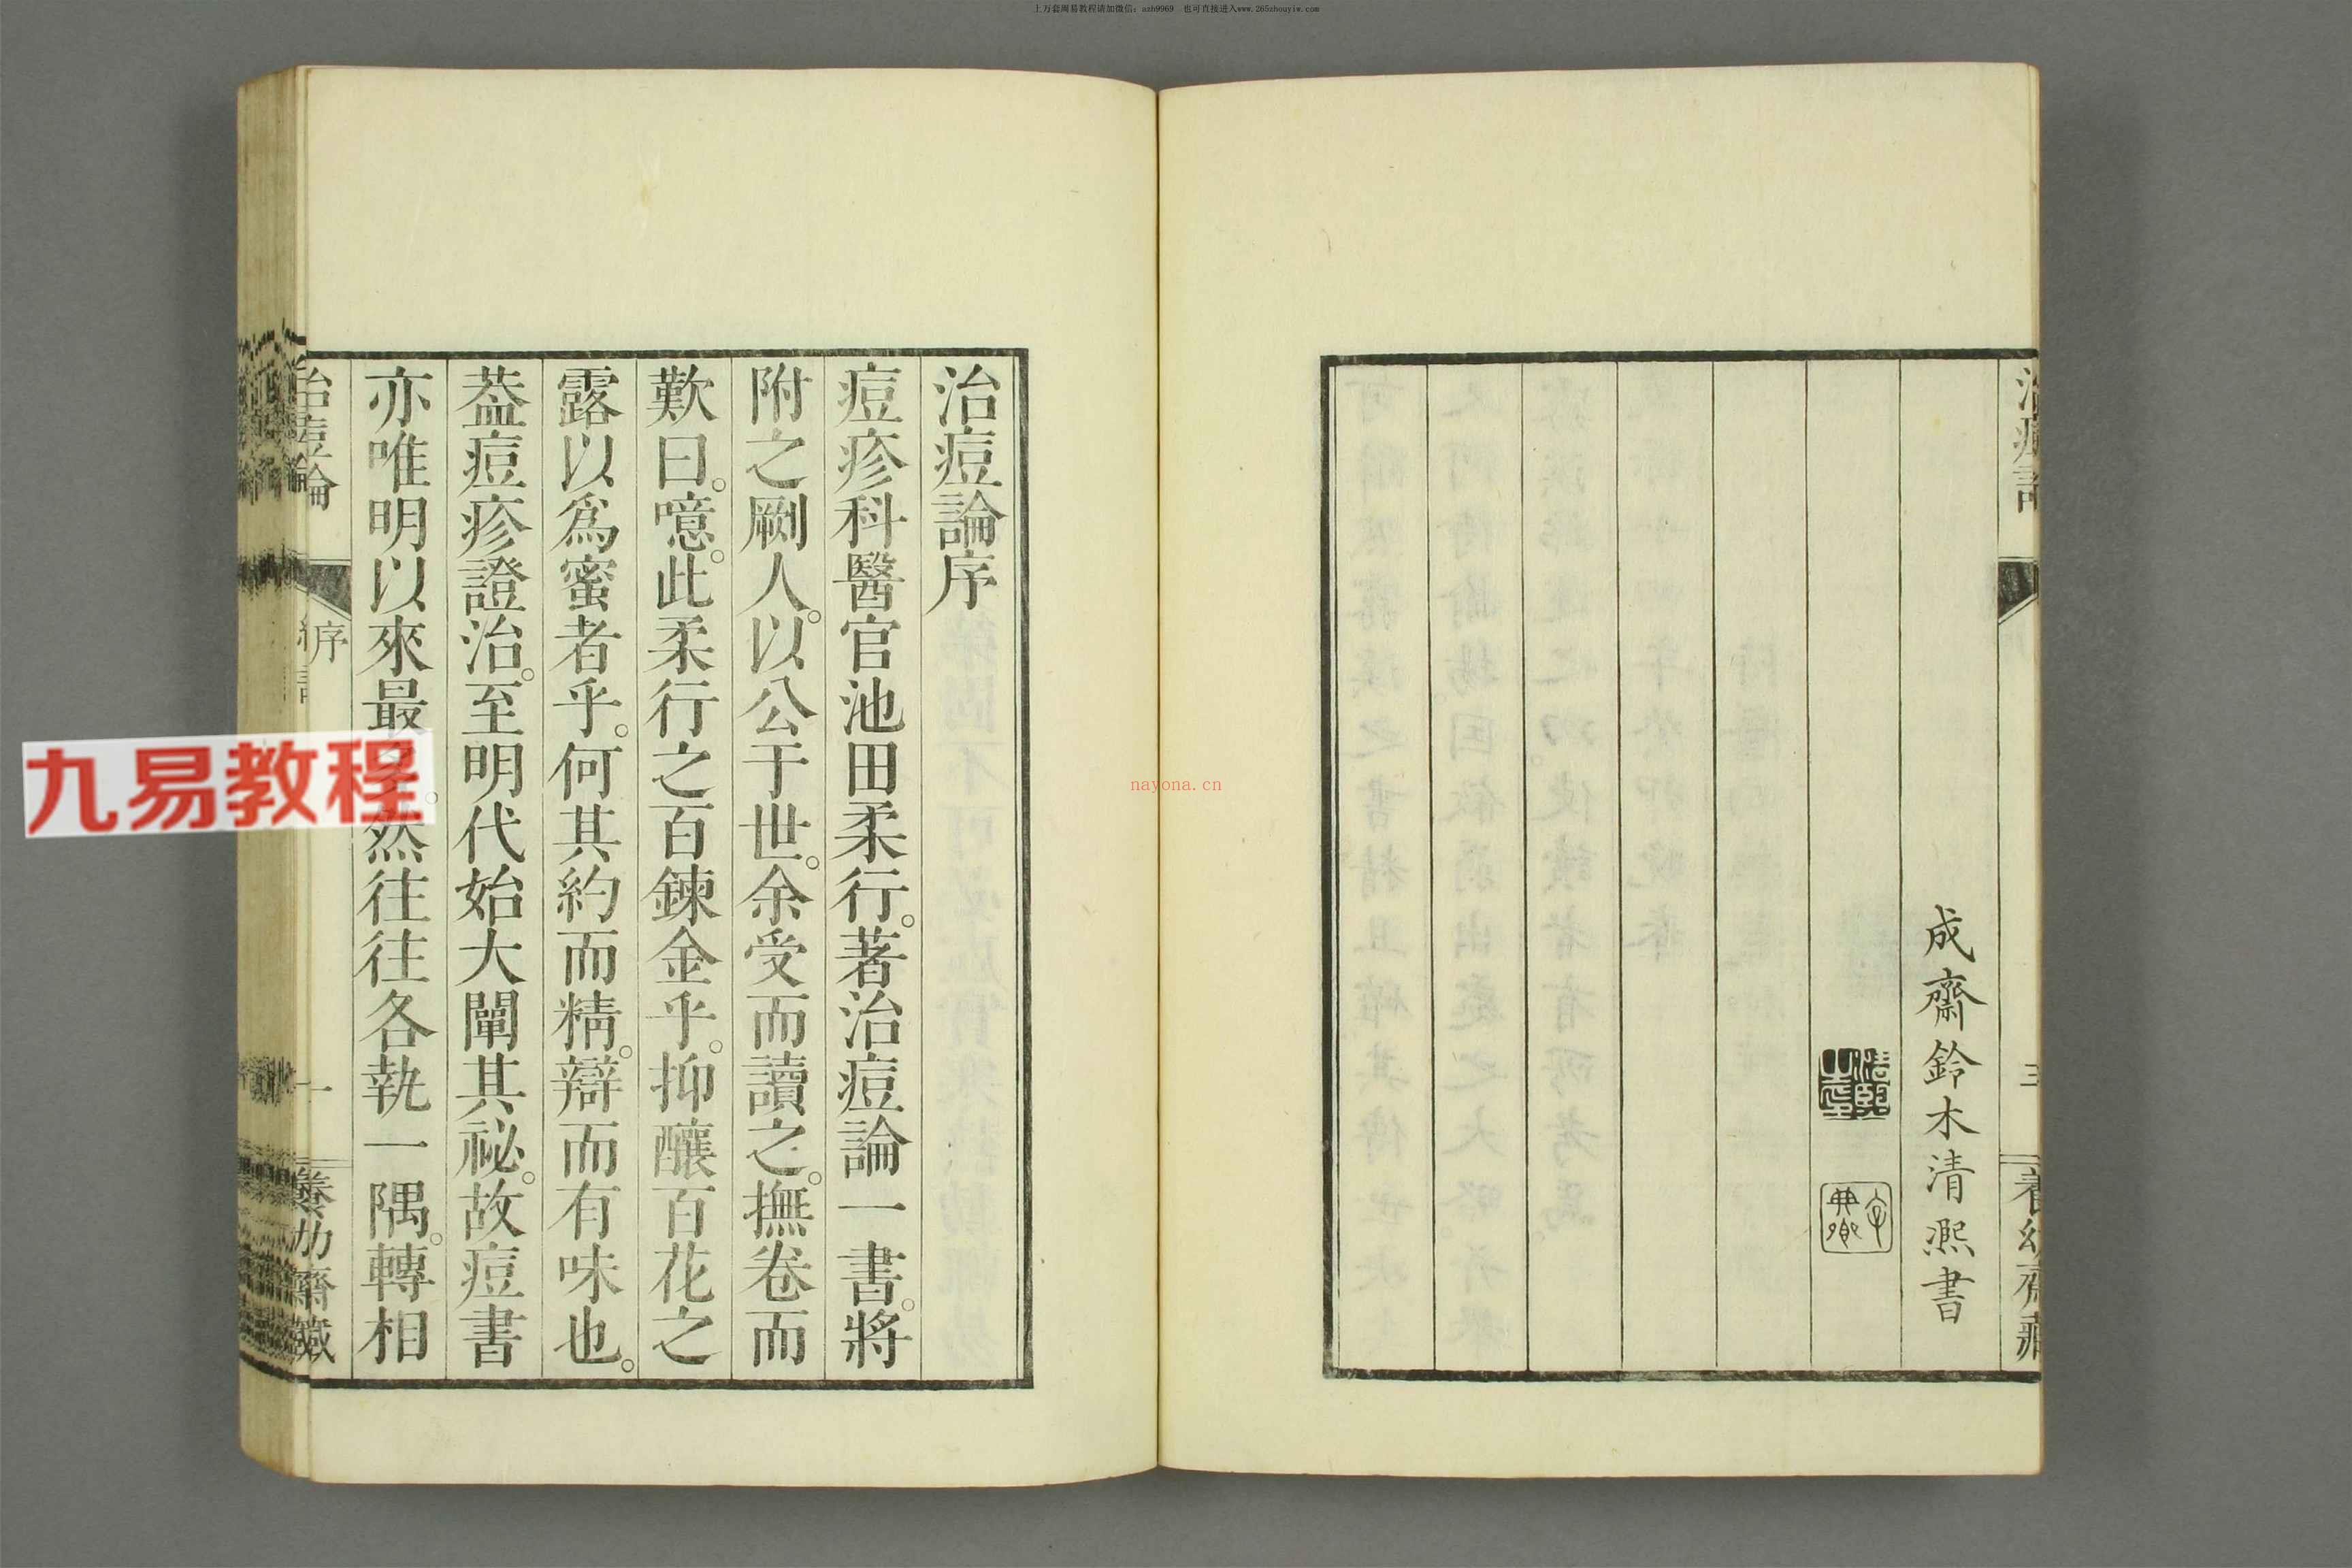 上万套周易教程请加微信：azh9969 也可直接进入www.265zhouyiw.com
成齋鈴木清熙書
三
治痘論序
痘疹科醫官池田柔行。著治痘論一書。將
附之劂人。以公于世。余受而讀之。撫卷而
歎曰。噫。此柔行之百鍊金乎。抑釀百花之
露以爲蜜者乎。何其約而精。辯而有味也。
葢痘疹證治。至明代始大闡其祕。故痘書
亦唯明以來最多。然往往各執一隅。轉相
治痘論
序
一
養幼齋藏
九易教程
nayona.cn